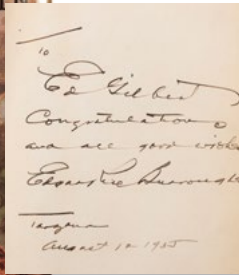 To
Ed Gilbert
Congratulations
and all good wishes
Edgar Rice Burroughs
Tarzana
August 12 1935